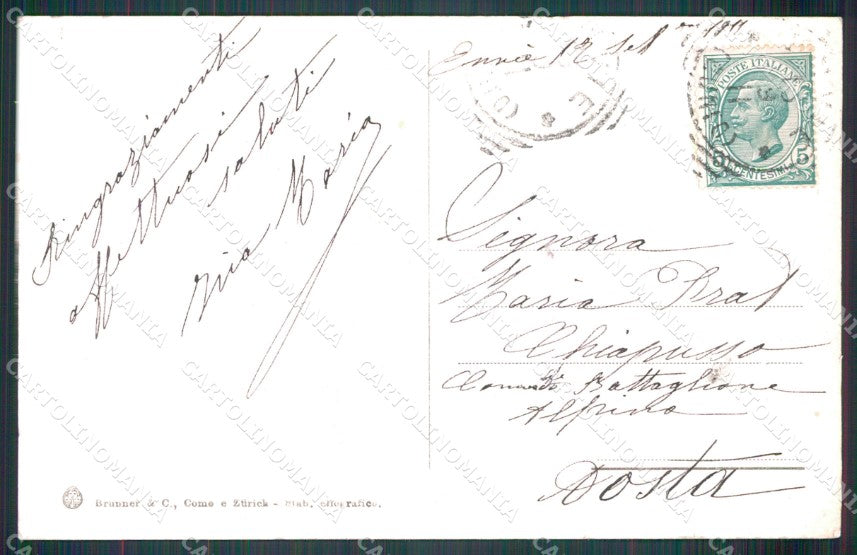 Ringraziamenti
affettuosi
saluti
Zia Maria
Envie 12 Set 1911
POSTE ITALIANE
CENTESIMI 5
Signora
Maria Prat
Chiapusso
Comando Battaglione
Alpino
Aosta
Brunner & C., Como e Zürich - Stab. elíografico.
CARTOLINOMANIA